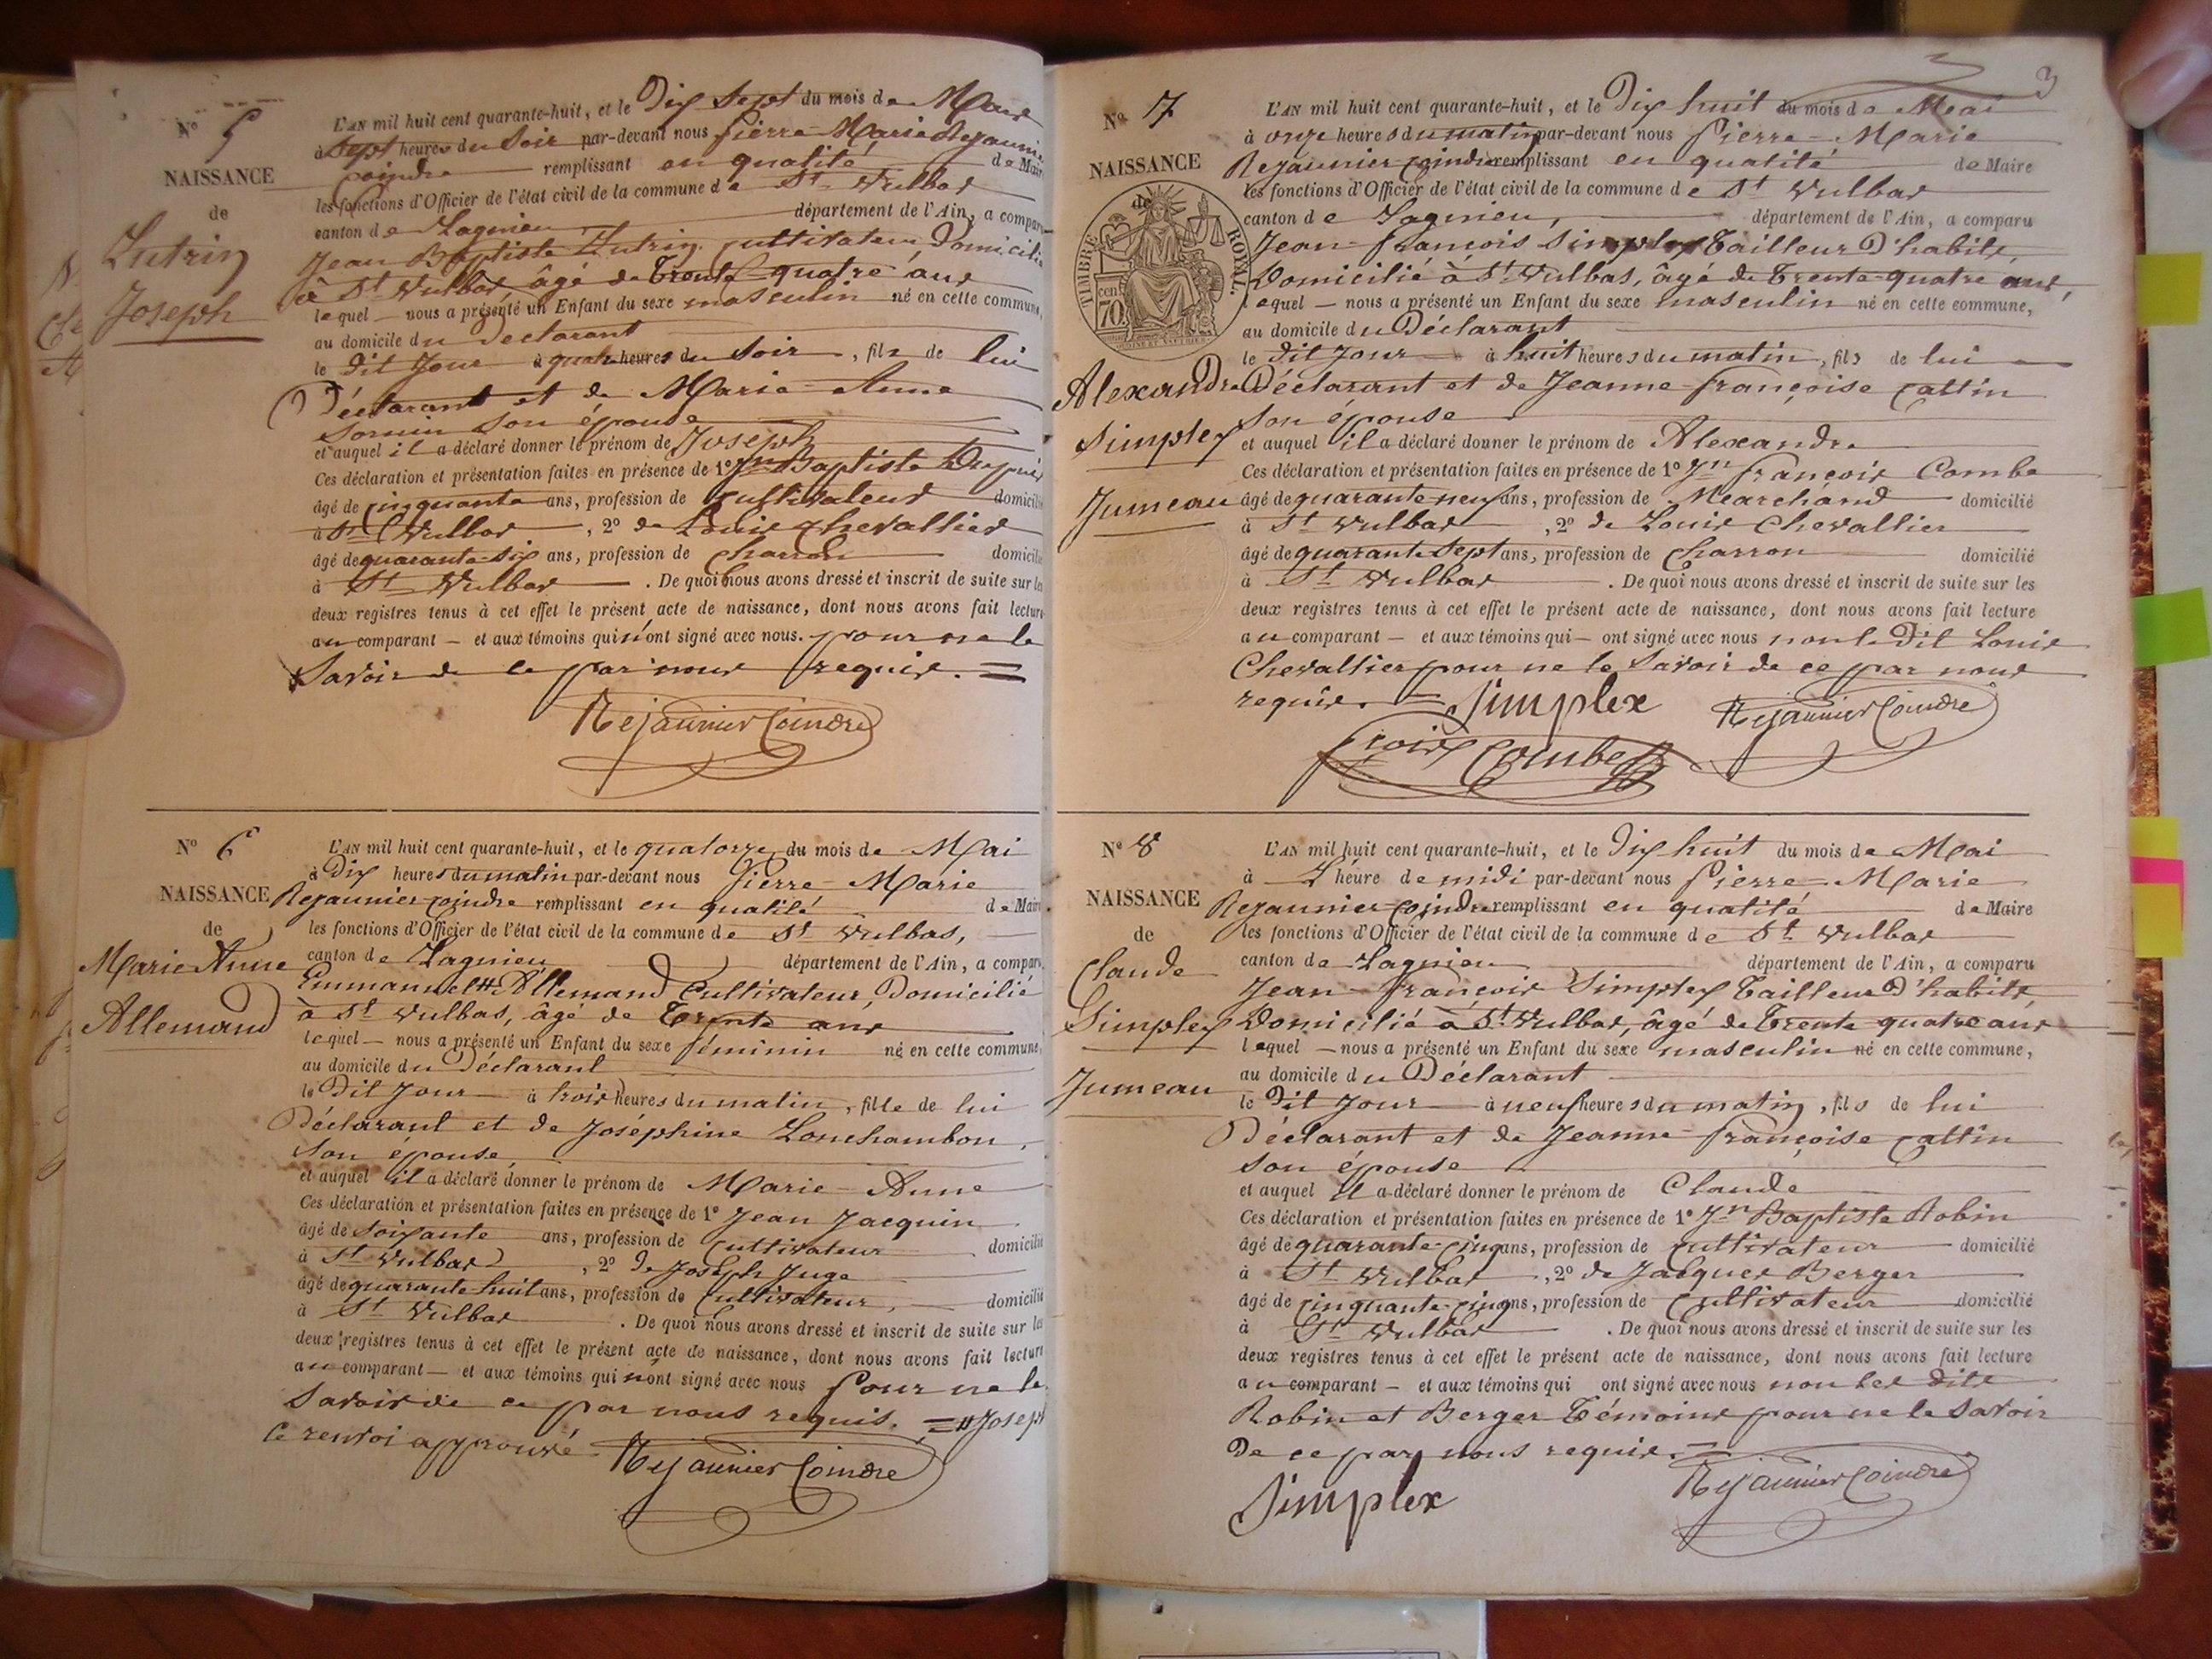 Nº 5
NAISSANCE
de
Lutrin
Joseph
L'AN mil huit cent quarante-huit, et le Dix Sept du mois de Mars
à Sept heures du Soir par-devant nous Pierre Marie Rejaunier
Coindre remplissant en qualité de Maire
les fonctions d'Officier de l'état civil de la commune de St Vulbas
canton de Lagnieu département de l'Ain, a comparu
Jean Baptiste Lutrin Cultivateur Domicilié
à St Vulbas âgé de Trente quatre ans
lequel — nous a présenté un Enfant du sexe masculin né en cette commune,
au domicile du Déclarant
le Dit Jour à quatre heures du Soir, fils de lui
Déclarant et de Marie Anne
Sornin Son épouse
et auquel il a déclaré donner le prénom de Joseph
Ces déclaration et présentation faites en présence de 1º Jn Baptiste Dupuis
âgé de cinquante ans, profession de Cultivateur domicilié
à St Vulbas, 2º de Louis Chevallier
âgé de quarante-Six ans, profession de Charron domicilié
à St Vulbas. De quoi nous avons dressé et inscrit de suite sur les
deux registres tenus à cet effet le présent acte de naissance, dont nous avons fait lecture
au comparant — et aux témoins qui n'ont signé avec nous. pour ne le
Savoir de ce par nous requis. =
Rejaunier Coindre
Nº 6
NAISSANCE
de
Marie Anne
Allemand
L'AN mil huit cent quarante-huit, et le quatorze du mois de Mai
à Dix heures du matin par-devant nous Pierre-Marie
Rejaunier Coindre remplissant en qualité de Maire
les fonctions d'Officier de l'état civil de la commune de St Vulbas,
canton de Lagnieu département de l'Ain, a comparu
Emmanuel # Allemand Cultivateur, Domicilié
à St Vulbas, âgé de Trente ans
lequel — nous a présenté un Enfant du sexe féminin né en cette commune,
au domicile du Déclarant
le Dit Jour à trois heures du matin, fille de lui
Déclarant et de Joséphine Lonchambon,
Son épouse,
et auquel il a déclaré donner le prénom de Marie-Anne
Ces déclaration et présentation faites en présence de 1º Jean Jacquin
âgé de Soixante ans, profession de Cultivateur domicilié
à St Vulbas, 2º de Joseph Juge
âgé de quarante-huit ans, profession de Cultivateur, domicilié
à St Vulbas. De quoi nous avons dressé et inscrit de suite sur les
deux registres tenus à cet effet le présent acte de naissance, dont nous avons fait lecture
au comparant — et aux témoins qui n'ont signé avec nous Pour ne le
Savoir de ce par nous requis. = # Joseph
Ce renvoi approuvé Rejaunier Coindre
3
Nº 7
NAISSANCE
de
TIMBRE ROYAL.
70 cent
Alexandre
Simplex
Jumeau
L'AN mil huit cent quarante-huit, et le Dix huit du mois de Mai
à onze heures du matin par-devant nous Pierre-Marie
Rejaunier Coindre remplissant en qualité de Maire
les fonctions d'Officier de l'état civil de la commune de St Vulbas
canton de Lagnieu, département de l'Ain, a comparu
Jean-françois Simplex Tailleur D'habits,
Domicilié à St Vulbas, âgé de Trente-quatre ans,
lequel — nous a présenté un Enfant du sexe masculin né en cette commune,
au domicile du Déclarant
le Dit Jour à huit heures du matin, fils de lui
Déclarant et de Jeanne-françoise Cattin
Son épouse
et auquel il a déclaré donner le prénom de Alexandre
Ces déclaration et présentation faites en présence de 1º Jn françois Combe
âgé de quarante neuf ans, profession de Marchand domicilié
à St Vulbas, 2º de Louis Chevallier
âgé de quarante Sept ans, profession de Charron domicilié
à St Vulbas. De quoi nous avons dressé et inscrit de suite sur les
deux registres tenus à cet effet le présent acte de naissance, dont nous avons fait lecture
au comparant — et aux témoins qui — ont signé avec nous non le Dit Louis
Chevallier pour ne le Savoir de ce par nous
requis. = Simplex Rejaunier Coindre
frois Combe
Nº 8
NAISSANCE
de
Claude
Simplex
Jumeau
L'AN mil huit cent quarante-huit, et le Dix huit du mois de Mai
à L'heure de midi par-devant nous Pierre-Marie
Rejaunier Coindre remplissant en qualité de Maire
les fonctions d'Officier de l'état civil de la commune de St Vulbas
canton de Lagnieu département de l'Ain, a comparu
Jean-françois Simplex Tailleur D'habits,
Domicilié à St Vulbas, âgé de Trente quatre ans
lequel — nous a présenté un Enfant du sexe masculin né en cette commune,
au domicile du Déclarant
le Dit Jour à neuf heures du matin, fils de lui
Déclarant et de Jeanne-françoise Cattin
Son épouse
et auquel il a déclaré donner le prénom de Claude
Ces déclaration et présentation faites en présence de 1º Jn Baptiste Robin
âgé de quarante-cinq ans, profession de Cultivateur domicilié
à St Vulbas, 2º de Jacques Berger
âgé de cinquante-cinq ans, profession de Cultivateur domicilié
à St Vulbas. De quoi nous avons dressé et inscrit de suite sur les
deux registres tenus à cet effet le présent acte de naissance, dont nous avons fait lecture
au comparant — et aux témoins qui ont signé avec nous non les dits
Robin et Berger Témoins pour ne le Savoir
De ce par nous requis. =
Simplex Rejaunier Coindre